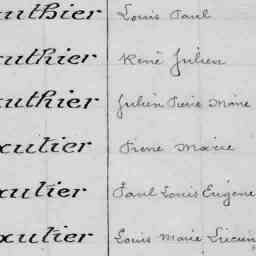 authier Louis Paul
authier René Julien
authier Julien Pierre Marie
autier Pierre Marie
autier Paul Louis Eugène
autier Louis Marie Lucien